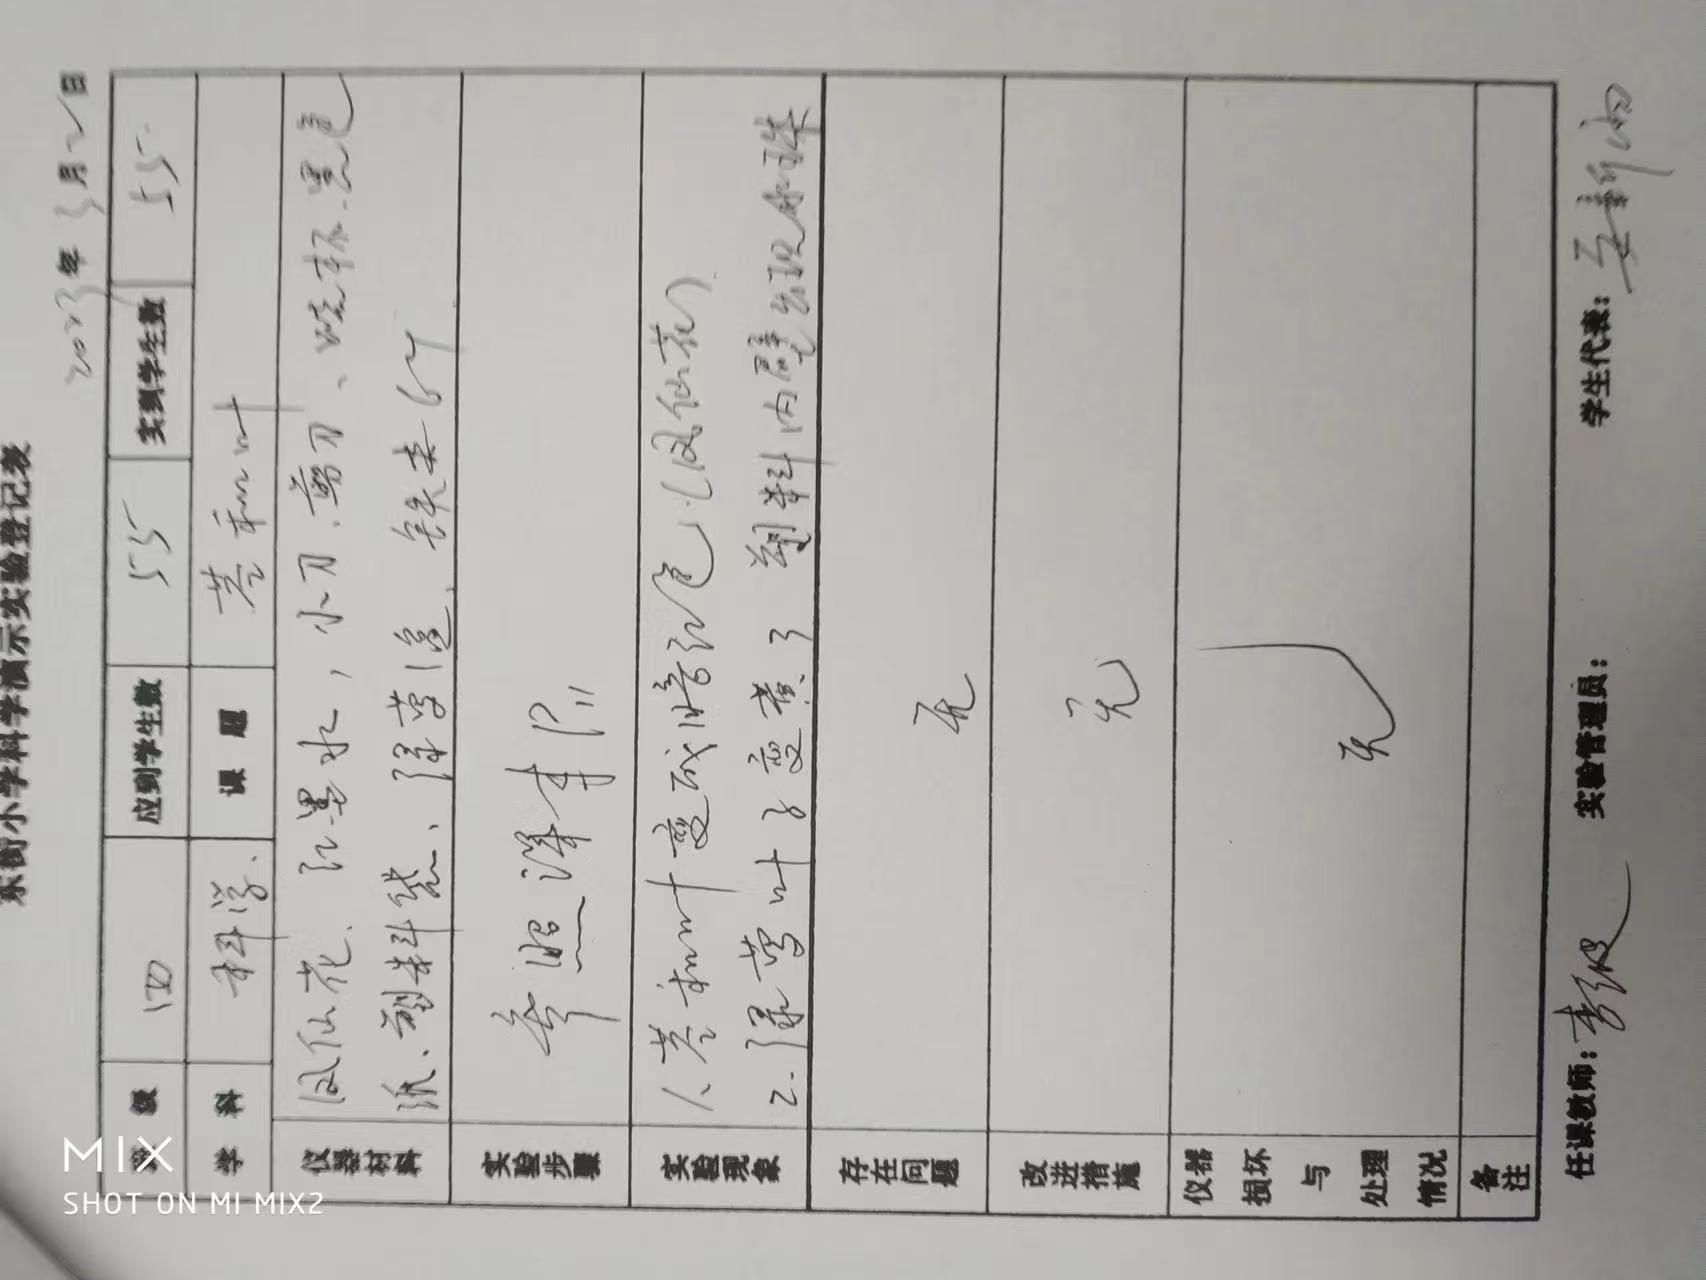 东街小学科学演示实验登记表
2023年3月2日
班 级 四 应到学生数 55 实到学生数 55
学 科 科学 课 题 茎和叶
仪器材料 凤仙花、红墨水,小刀、剪刀、烧杯、黑色
纸、塑料袋、绿萝1盆、铁夹6个
实验步骤 参照课本P11
实验现象 1、茎和叶变成暗红色(凤仙花)
2.绿萝叶子变黄了 塑料内壁出现水珠
存在问题 无
改进措施 无
仪器损坏与处理情况 无
备注
任课教师: 李 实验管理员: 学生代表:
MIX
SHOT ON MI MIX2